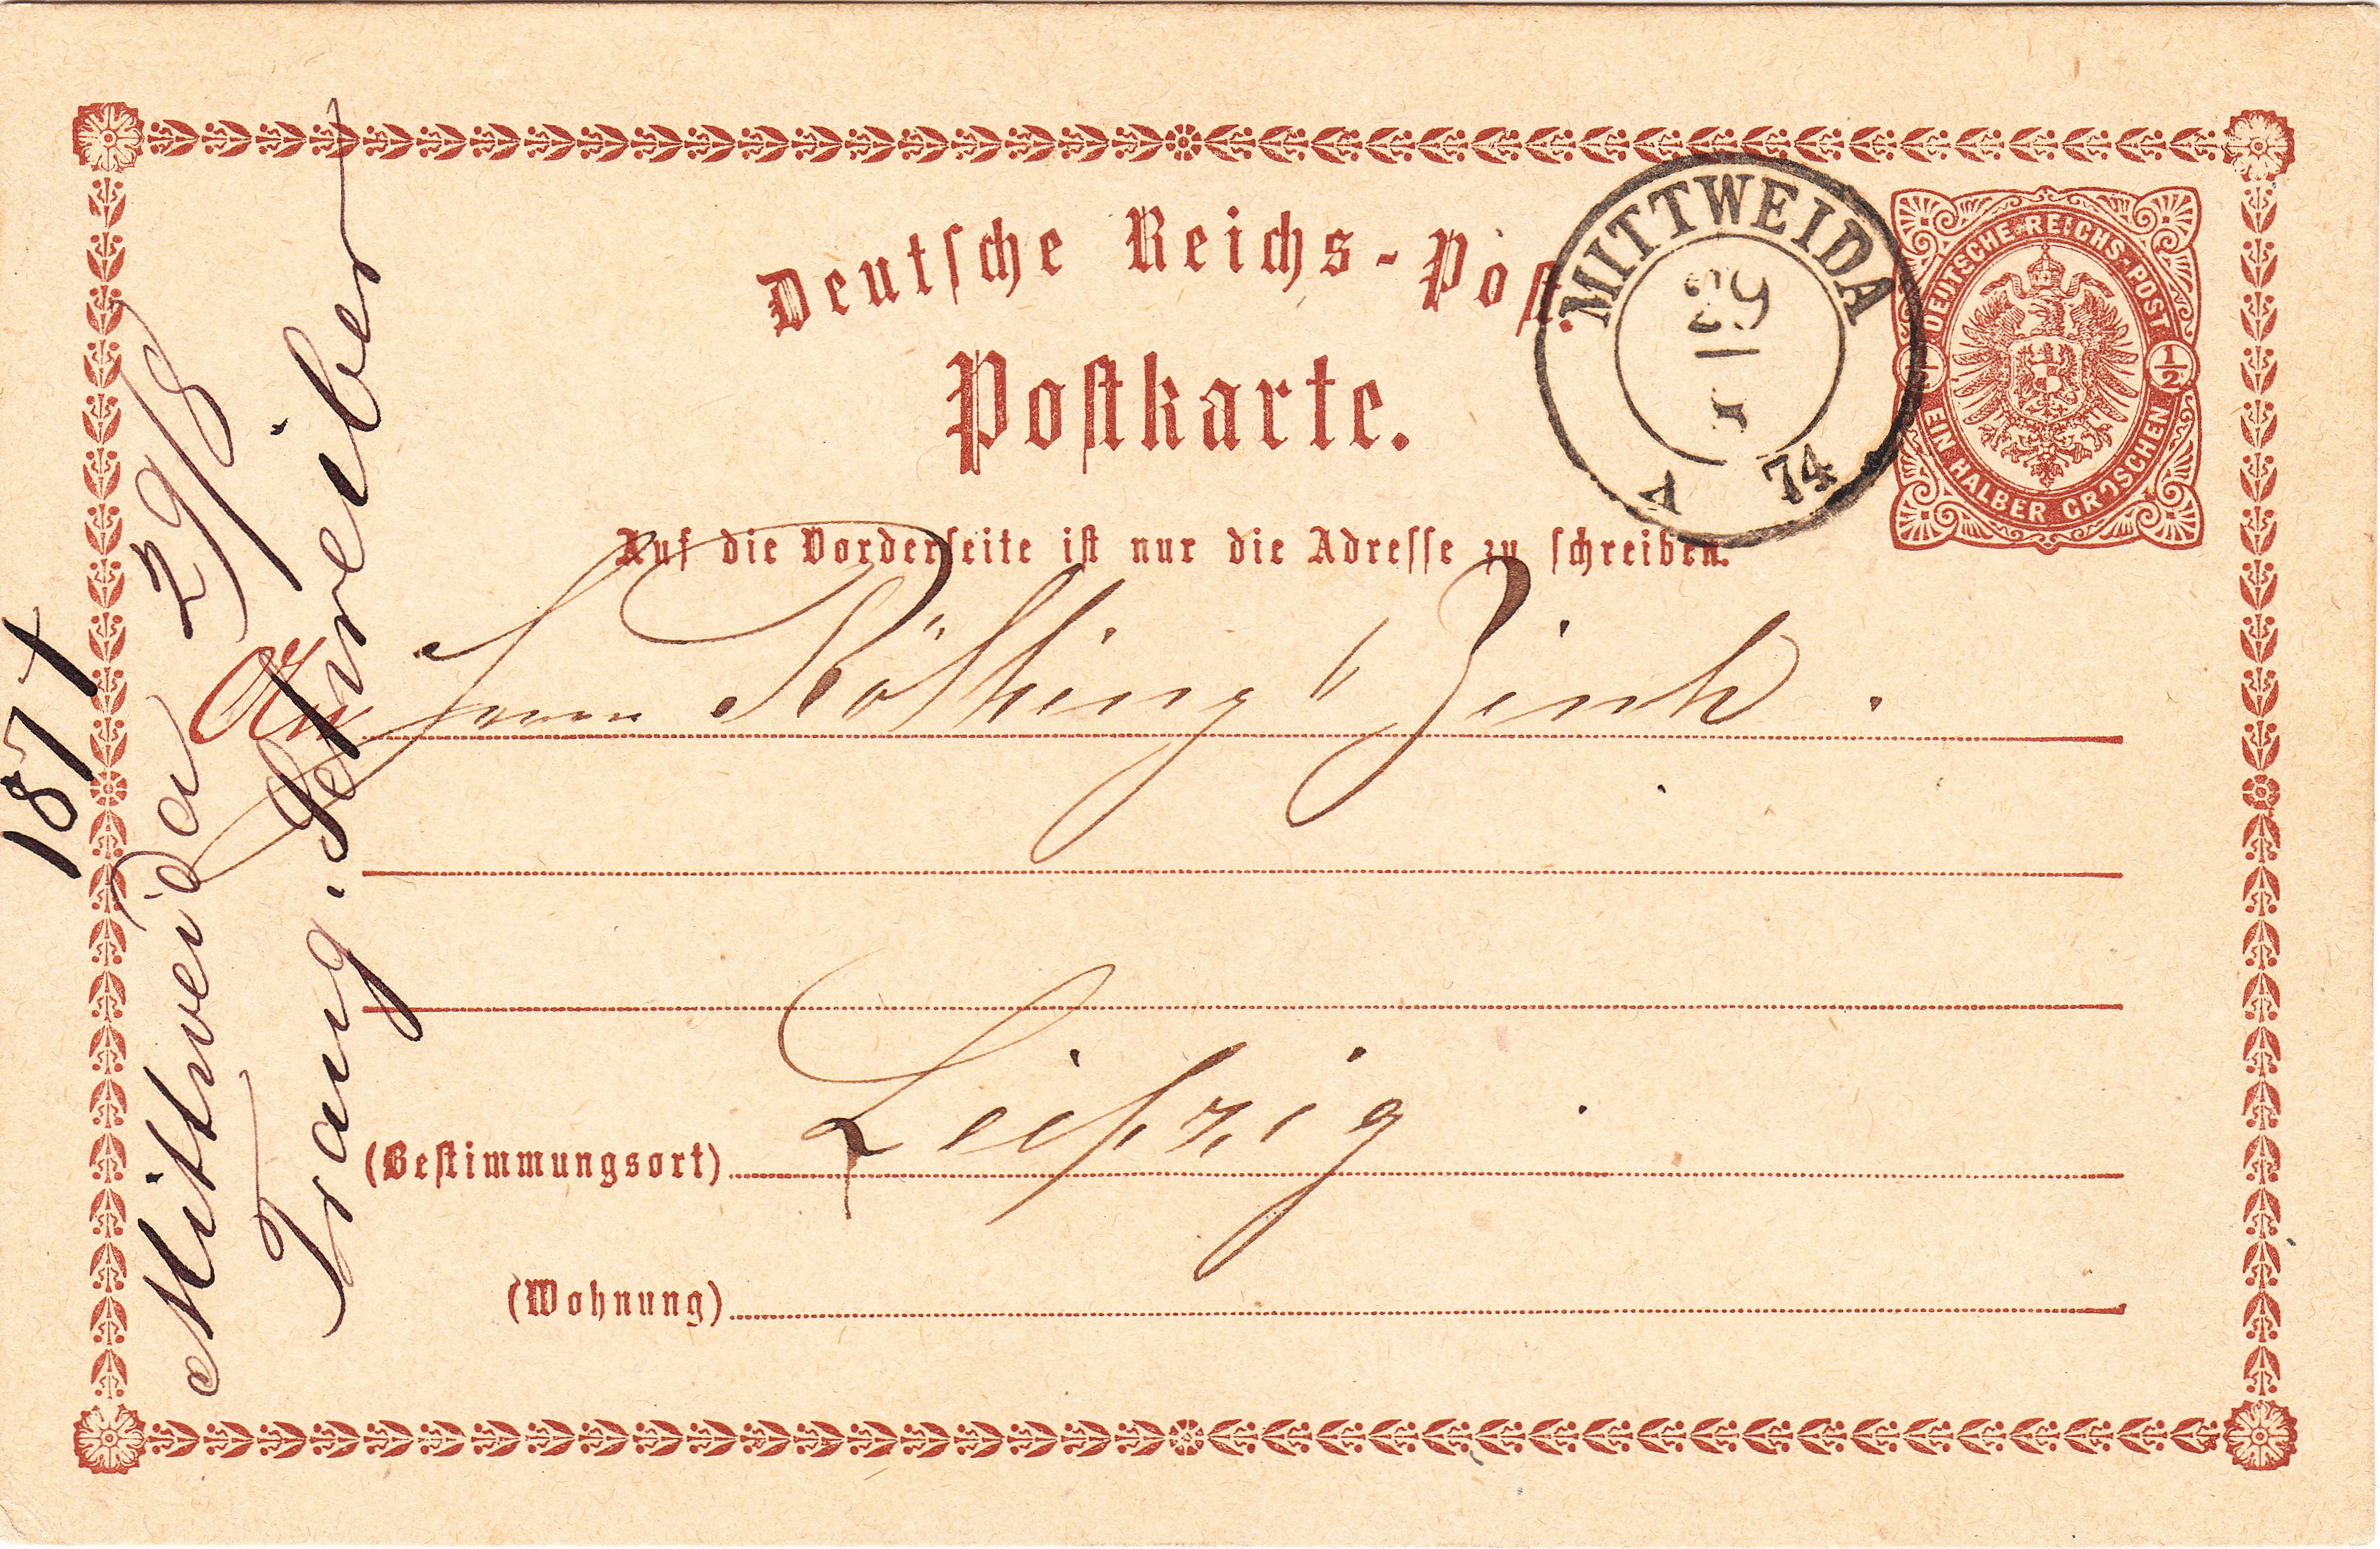 Deutsche Reichs-Post.
Postkarte.
MITTWEIDA
29
V 74
DEUTSCHE REICHS-POST
1/2
EIN HALBER GROSCHEN
Auf die Vorderseite ist nur die Adresse zu schreiben.
An Herrn Röthing & Zink.
(Bestimmungsort) Leipzig
(Wohnung)
1874
Mittweida 29/8
Traug. Schreiber